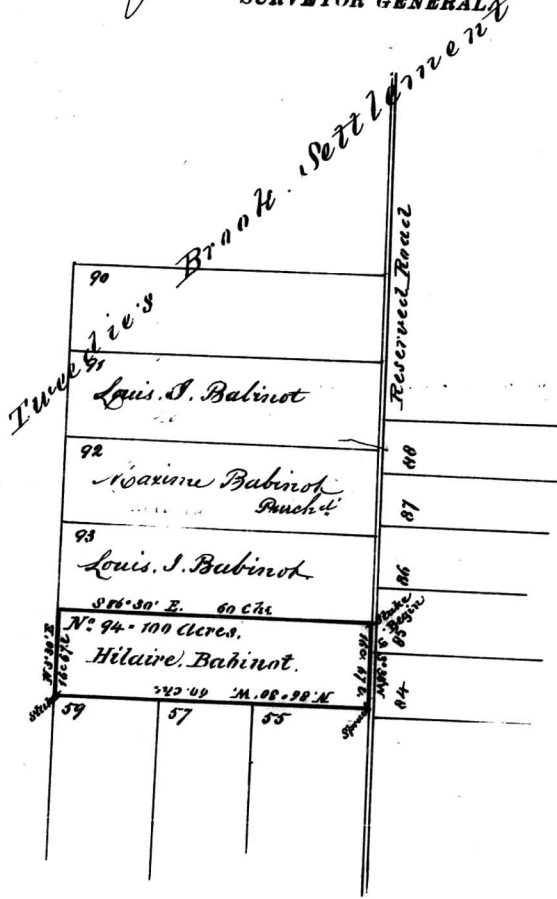 SURVEYOR GENERAL.
Tweedie's Brook Settlement
Reserved Road
90
91
Louis. J. Babinot
92
Maxime Babinot
Purch'd
93
Louis. J. Babinot
S 86° 30' E. 60 Chs
Nº 94 - 100 Acres.
Hilaire. Babinot.
N. 86° 30' W. 60 chs
N 3° 30' E
16 c 67 l
Stake
Stake
Begin
Spruce
59
57
55
88
87
86
85
84